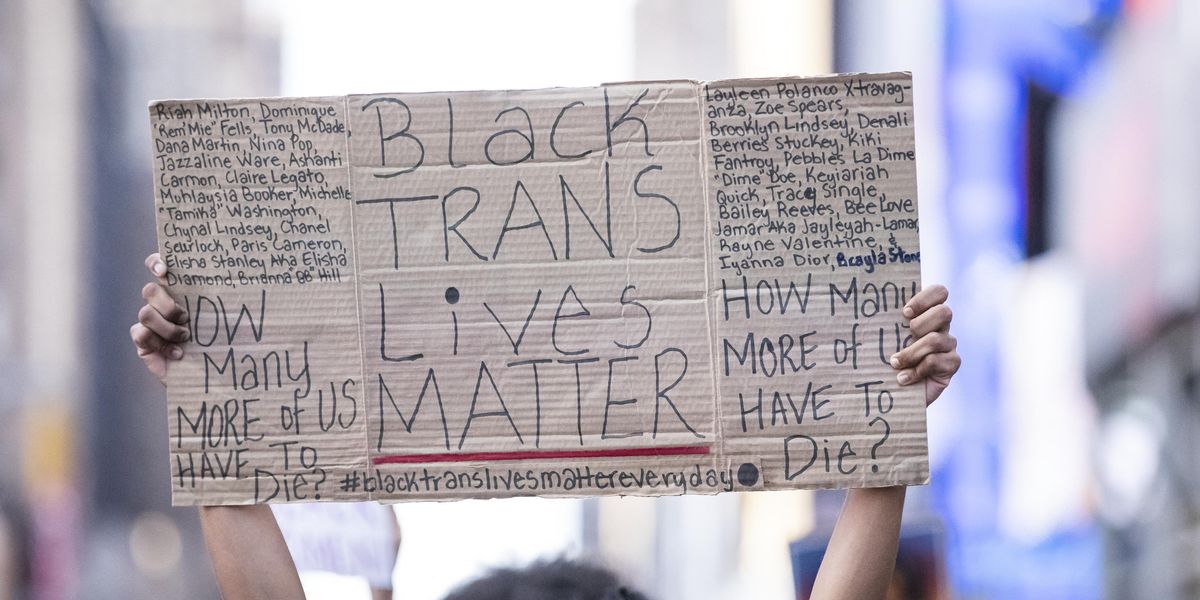 Riah Milton, Dominique
"Remi Mie" Fells, Tony McDade,
Dana Martin, Nina Pop,
Jazzaline Ware, Ashanti
Carmon, Claire Legato,
Muhlaysia Booker, Michelle
"Tamika" Washington,
Chynal Lindsey, Chanel
Scurlock, Paris Cameron,
Elisha Stanley Aka Elisha
Diamond, Brianna "BB" Hill
HOW
Many
MORE of US
HAVE To
Die?
Black
TRANS
Lives
MATTER
#blacktranslivesmattereveryday
Layleen Polanco Xtravag-
anza, Zoe Spears,
Brooklyn Lindsey, Denali
Berries Stuckey, Kiki
Fantroy, Pebbles La Dime
"Dime" Doe, Keyiariah
Quick, Tracy Single,
Bailey Reeves, Bee Love
Jamar Aka Jayleyah-Lamar,
Rayne Valentine, &
Iyanna Dior, Brayla Stone
HOW Many
MORE of US
HAVE To
Die?